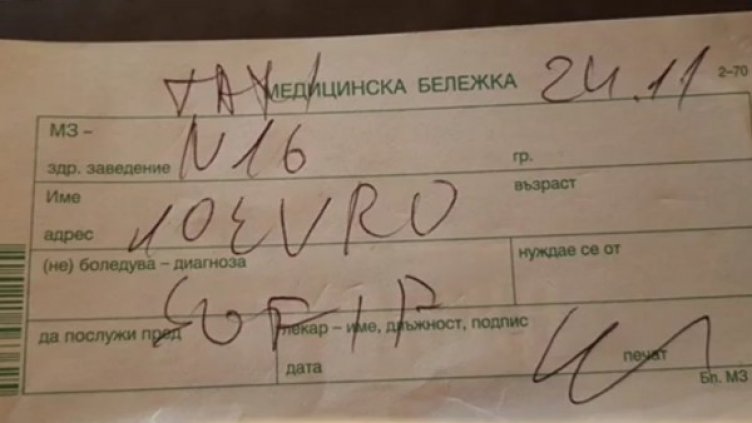 TAXI МЕДИЦИНСКА БЕЛЕЖКА 24.11 2-70
МЗ –
здр. заведение N16 гр.
Име възраст
адрес 10 EVRO
(не) боледува – диагноза нуждае се от
SOFIA
да послужи пред лекар – име, длъжност, подпис
дата печат
Бл. МЗ